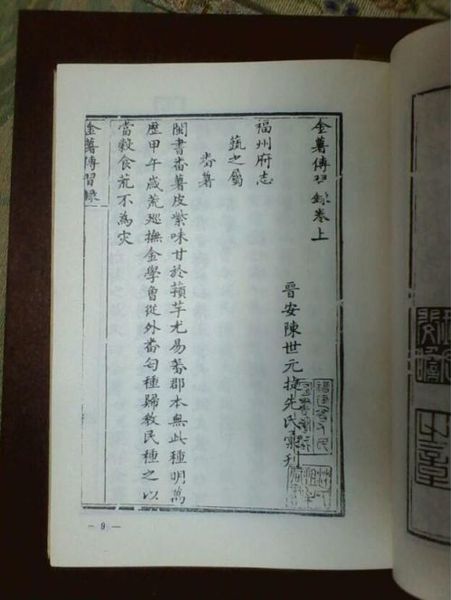 金薯傳習錄卷上
晉安陳世元捷先氏彙刋
福州府志
蔬之屬
畨薯
閩書畨薯皮紫味甘於蘋芋尤易蕃郡本無此種明萬
歷甲午歲荒廵撫金學曾從外畨匄種歸教民種之以
當穀食荒不為灾
金薯傳習錄
— 9 —